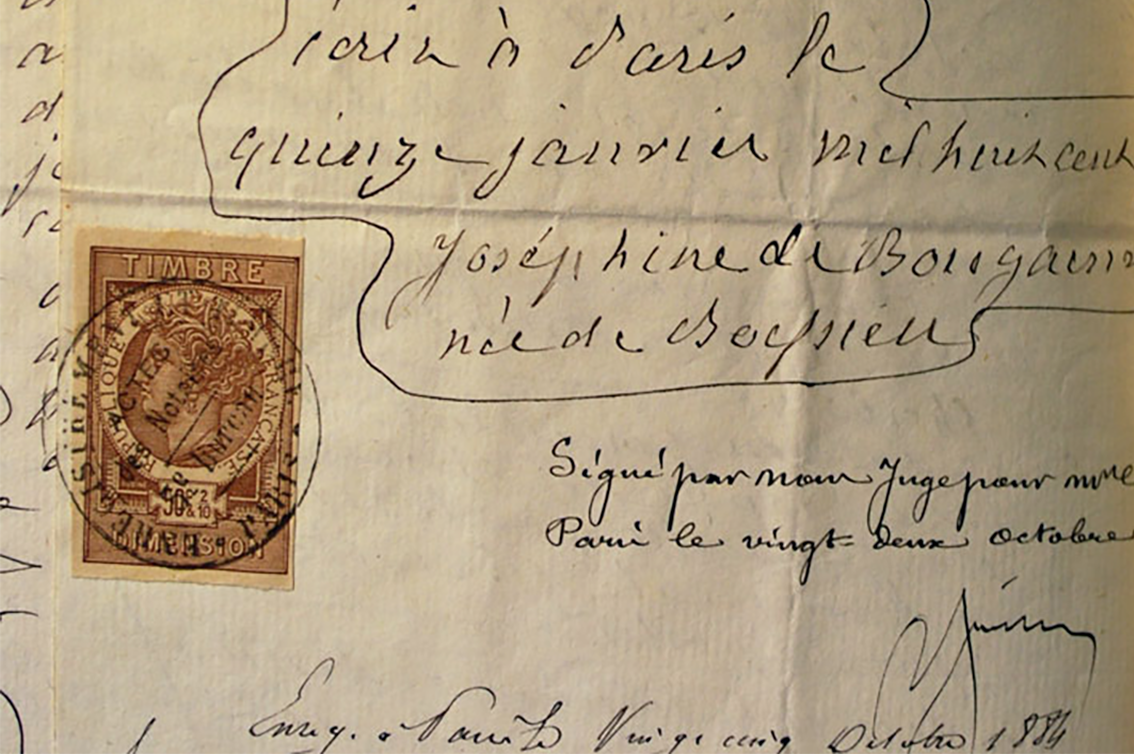 écrit à Paris le
quinze janvier mil huit cent
Joséphine de Bougainv
née de Boyssieu
TIMBRE
RÉPUBLIQUE FRANÇAISE
ACTES
50c
DIMENSION
Signé par nous Juge pour mme
Paris le vingt-deux octobre
Enreg. à Paris le Vingt cinq Octobre 1884